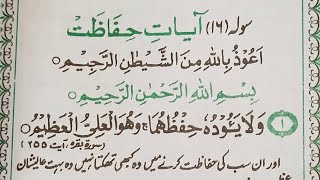 سولہ (۱۶) آیاتِ حفاظت
اَعُوْذُ بِاللّٰهِ مِنَ الشَّيْطٰنِ الرَّجِيْمِ ○
بِسْمِ اللّٰهِ الرَّحْمٰنِ الرَّحِيْمِ ○
۱ وَلَا يَئُوْدُهٗ حِفْظُهُمَا ۚ وَهُوَ الْعَلِيُّ الْعَظِيْمُ ○
(سورۃ بقرہ، آیت ۲۵۵)
اور ان سب کی حفاظت کرنے میں وہ کبھی تھکتا نہیں وہ بہت عالیشان